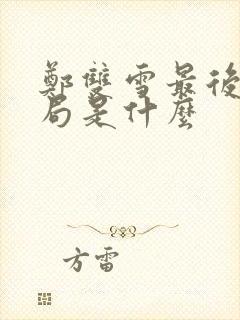 鄭雙雪最後
局是什麼
方雷